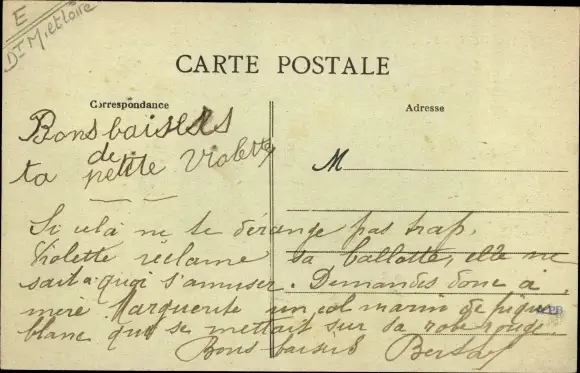 E
Dt M. et Loire
CARTE POSTALE
Correspondance
Adresse
Bons baisers
de
ta petite Violette
M
Si cela ne te dérange pas trop,
Violette réclame sa ballotte, elle ne
sait à quoi s'amuser. Demandes donc à
mère Marguerite un col marin de pique
blanc qui se mettait sur sa robe rouge.
Bons baisers